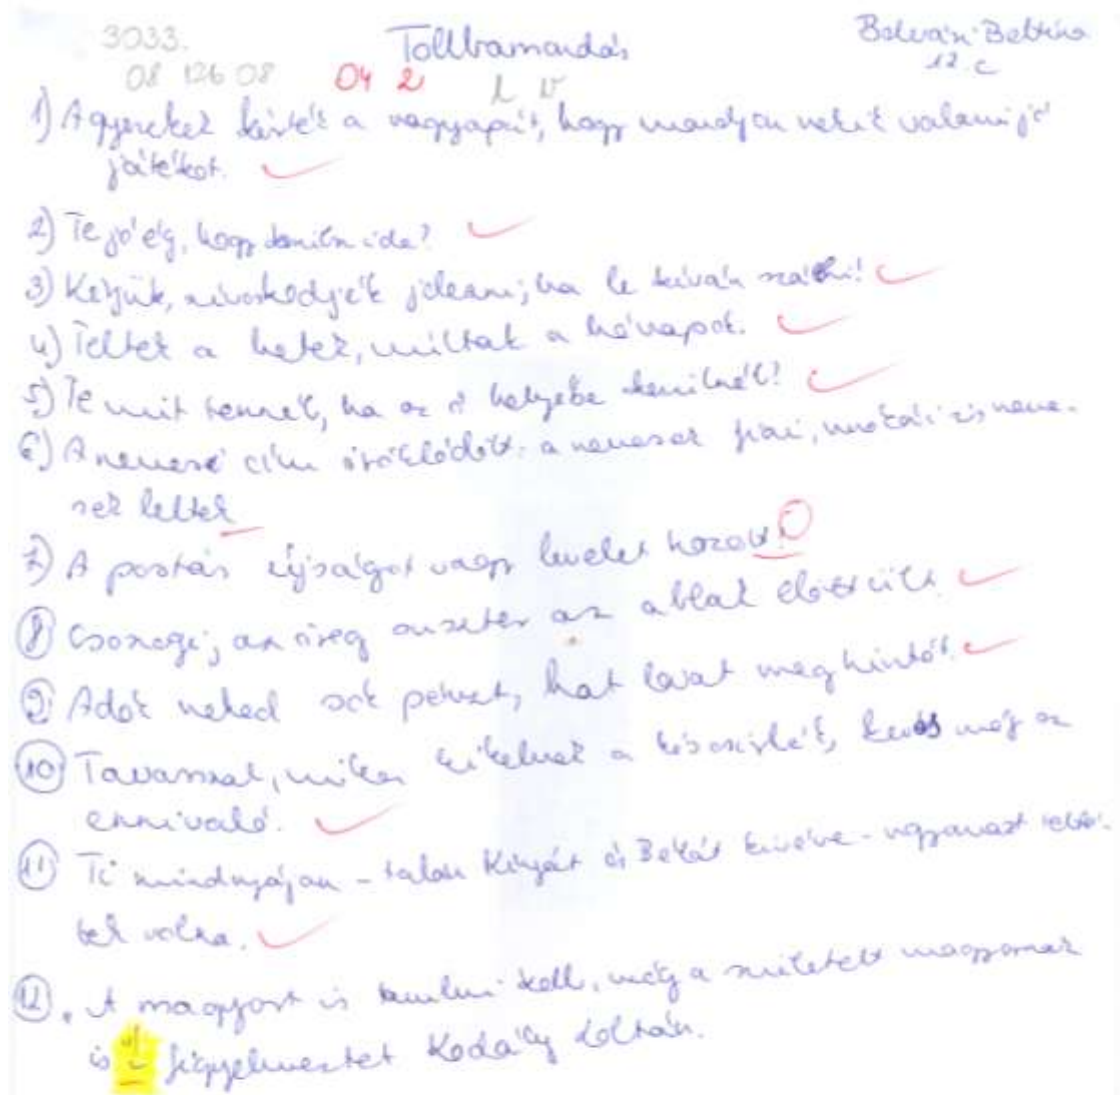 3033. Tollbamondás Bolván Bettina
08 126 08 04 2 l v 12. c
1) A gyerekek kérték a nagyapát, hogy mondjon nekik valami jó
játékot.
2) Te jó ég, hogy kerülsz ide?
3) Kérjük, szíveskedjék jelezni, ha le kíván szállni!
4) Teltek a hetek, múltak a hónapok.
5) Te mit tennél, ha az ő helyébe kerülnél?
6) A nemesi cím öröklődött: a nemesek fiai, unokái is neme-
sek lettek
7) A postás újságot vagy levelet hozott?
8) Csoszogi, az öreg suszter az ablak előtt ült.
9) Adok neked sok pénzt, hat lovat meg hintót.
10) Tavasszal, mikor kikelnek a kis fiókák, kevés még az
ennivaló.
11) Ti mindnyájan - talán Kingát és Bélát kivéve - ugyanazt tettétek
tek volna.
12. A magyart is tanulni kell, még a született magyarnak
is "- figyelmeztet Kodály Zoltán.